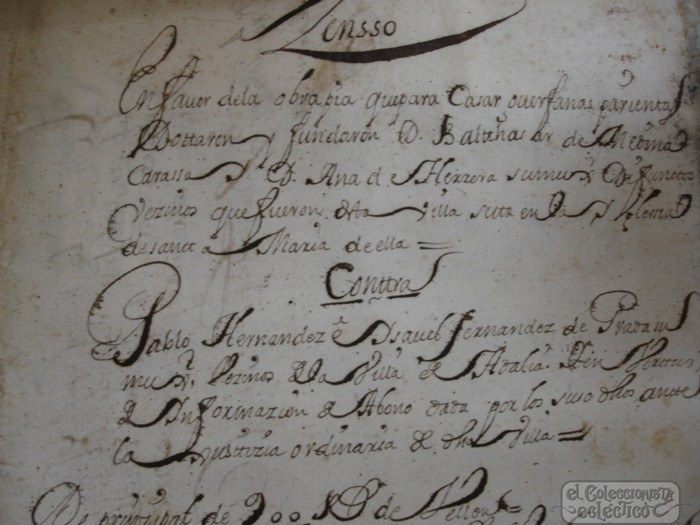 Zensso
En favor dela obra pia que para Casar overfanas parientas
Dottaron y fundaron D. Balthasar de Medina
Carassa y D. Ana de Herrera su mugr Defunctos
vezinos que fueron desta villa sita en la Yglesia
de sancta Maria de ella =
Conttra
Pablo Hernandez e Ysavel fernandez de Prada su
mugr. Vezinos de la Villa de Adalia. En Virtud
de Ynformazion de Abono dada por los suso dhos ante
la Justizia ordinaria de dha Villa =
De principal de 900 Rs de Vellon =
el Coleccionista
ecléctico